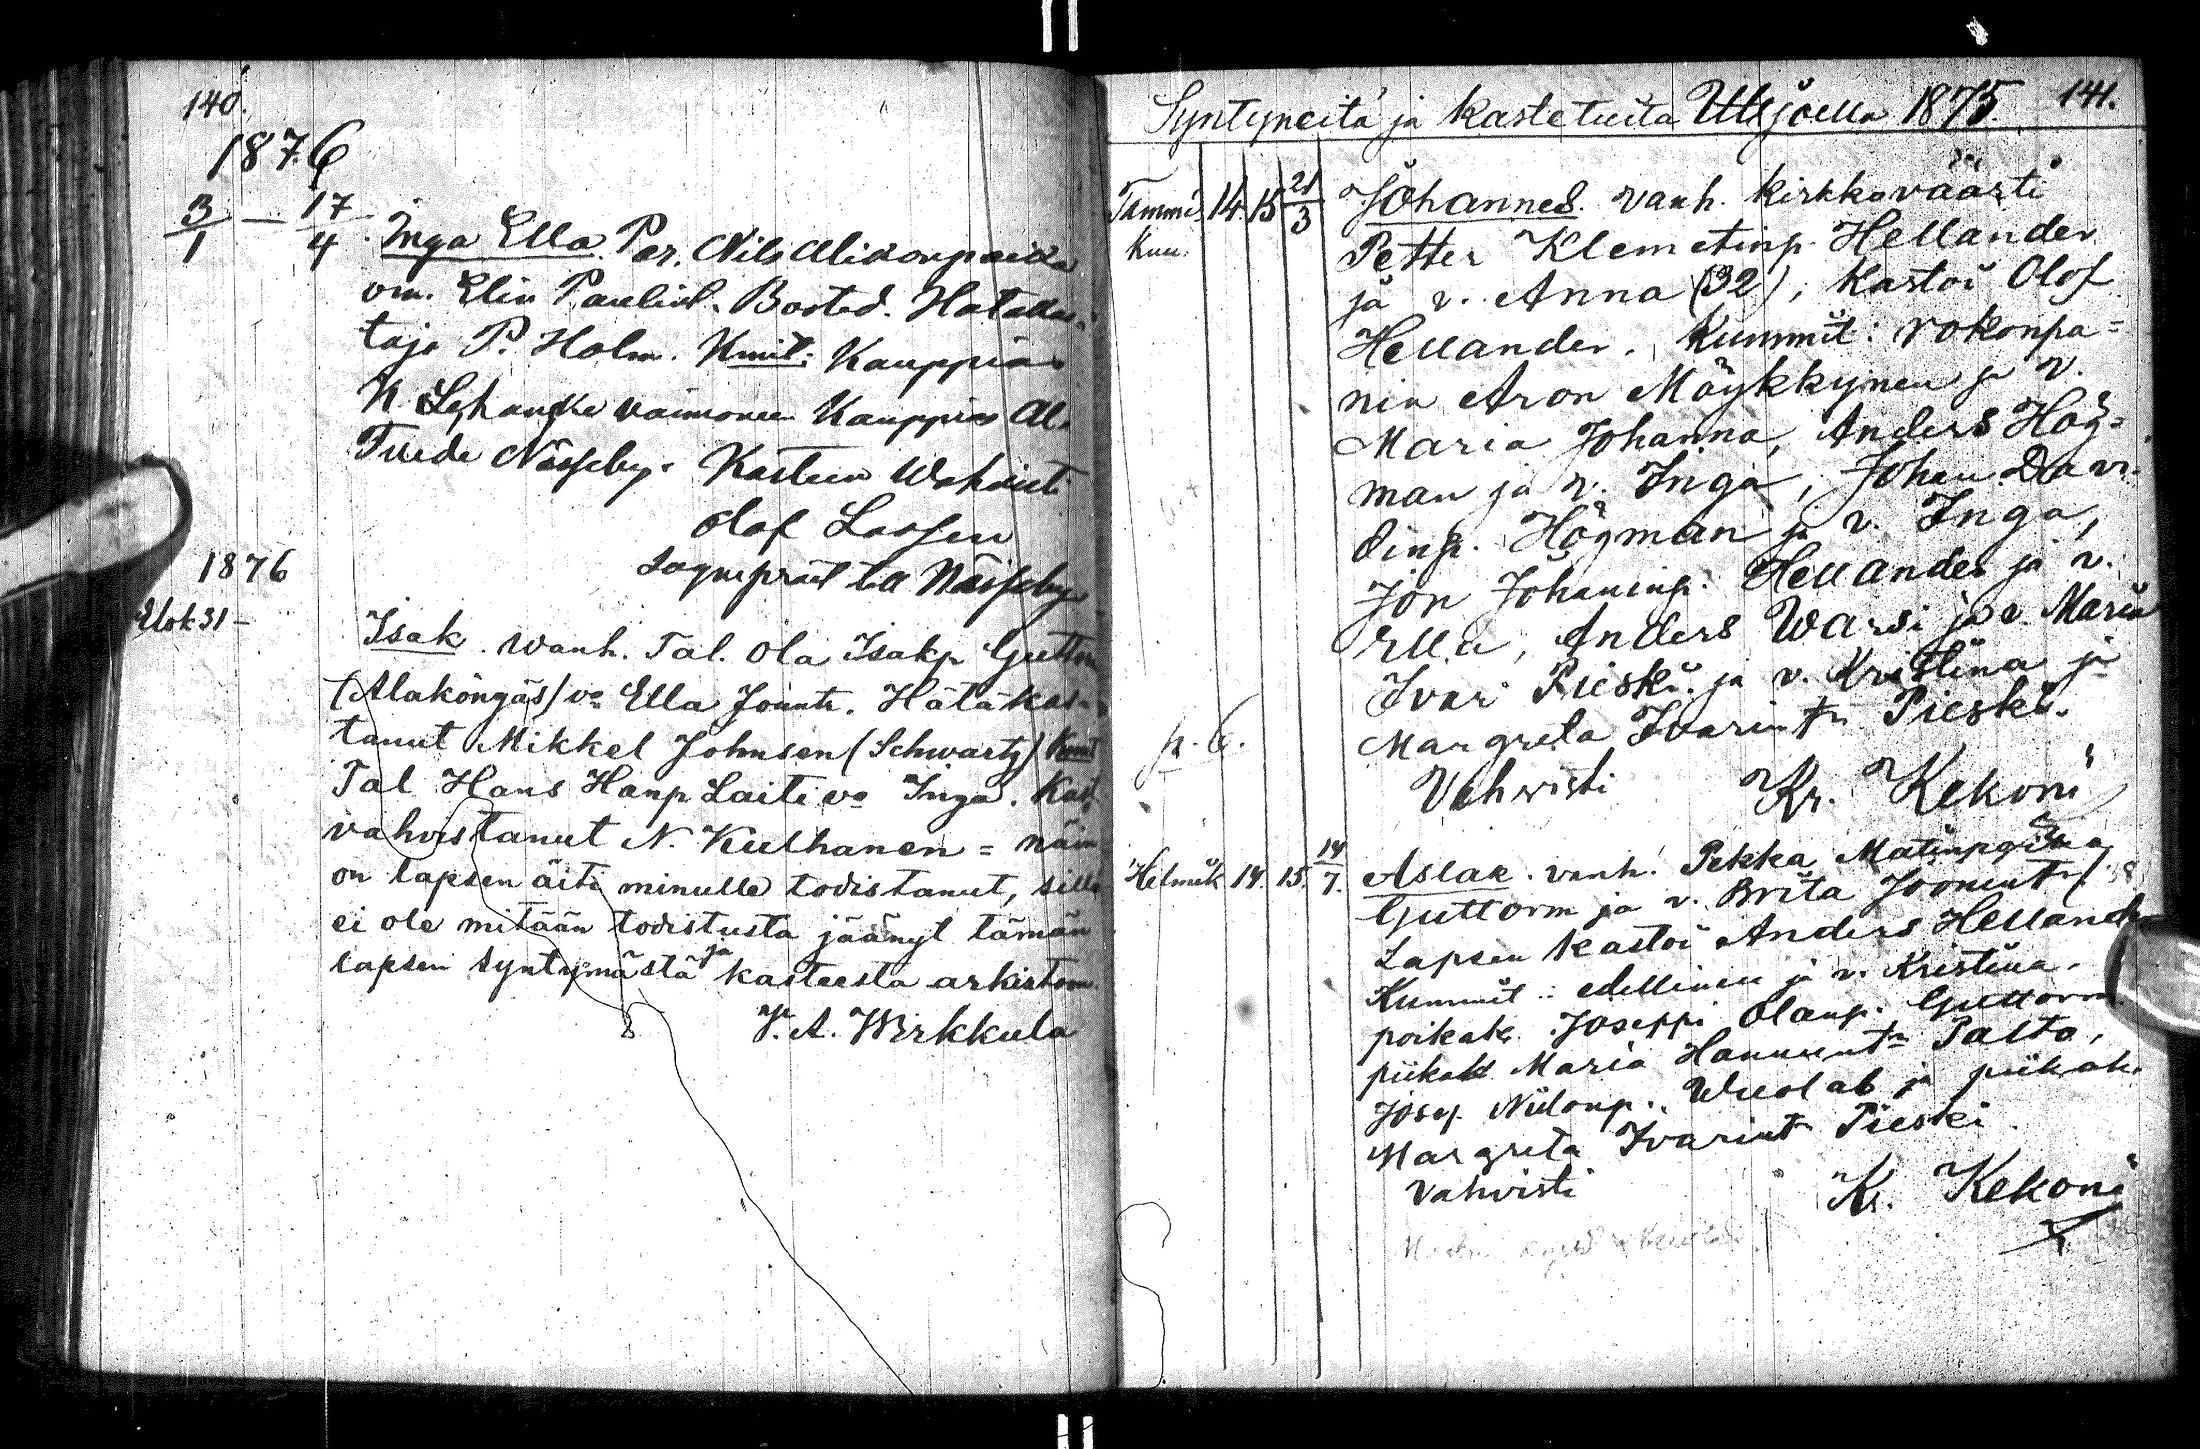 140.
1876
3/1 — 17/4 Inga Ella. Par. Nils
vm. Elin Booted. Hätäkas-
taja P. Holm. Kmit: Kauppias
N. vaimonee Kauppias Al.
Tvede Næsseby. Kasteen Wahvist.
Olaf Lassen
Sogneprest til Næsseby
1876
Elok 31 –
Isak. wanh. Tal. Ola Isakp Guttorm
(Alaköngäs) vo Ella Jount. Hätäkas-
tanut Mikkel Johnsen (Schwartz) Kmit
Tal Hans Hanp Laiti vo Inga. Kast.
vahvistanut N. Kulhanen = näin
on lapsen äiti minulle todistanut, sillä
ei ole mitään todistusta jäänyt tämän
lapsen syntymästä ja kasteesta arkistoon.
A. Wirkkula
Syntyneitä ja kastetuita Utsjoella 1875. 141.
Tammi
kuu. 14. 15 21/3 Johannes. vanh. kirkkoväärti
Petter Klemetinp. Hellander
ja v. Anna (32); kastoi Olof
Hellander. Kummit: rokonpa=
nia Aron Möykkynen ja v.
Maria Johanna, Anders Hög=
man ja v. Inga, Johan Davi-
dinp. Högman ja v. Inga,
Jon Johaninp. Hellander ja v.
Ella, Anders Warsi ja v. Maria
Ivar Pieski ja v. Kristina ja
Margreta Ivarint. Pieski.
p. 6.
Vahvisti Kr. Kekoni
Helmik 14. 15. 14/7. Aslak. vanh. Pekka Matinp
Guttorm ja v. Brita Joonint
Lapsen kastoi Anders Hellander
Kummit: edellinen ja v. Kristina.
poikak. Joseppi Olanp. Guttorm
piikak. Maria Hannunt. Palto,
Josep. Niilonp. Wuolab ja piikak.
Margreta Ivarint Pieski.
Vahvisti Kr. Kekoni